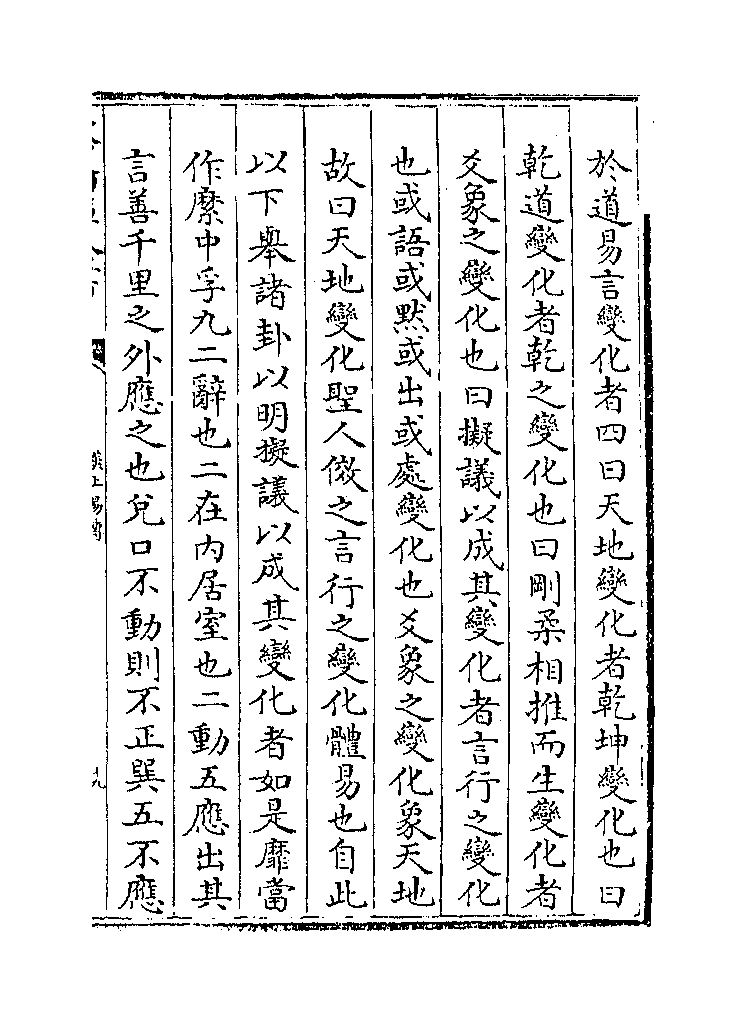 於道易言變化者四曰天地變化者乾坤變化也曰
乾道變化者乾之變化也曰剛柔相推而生變化者
爻象之變化也曰擬議以成其變化者言行之變化
也或語或黙或出或處變化也爻象之變化象天地
故曰天地變化聖人傚之言行之變化體易也自此
以下舉諸卦以明擬議以成其變化者如是靡當
作縻中孚九二辭也二在内居室也二動五應出其
言善千里之外應之也兌口不動則不正巽五不應
漢上易傳
九